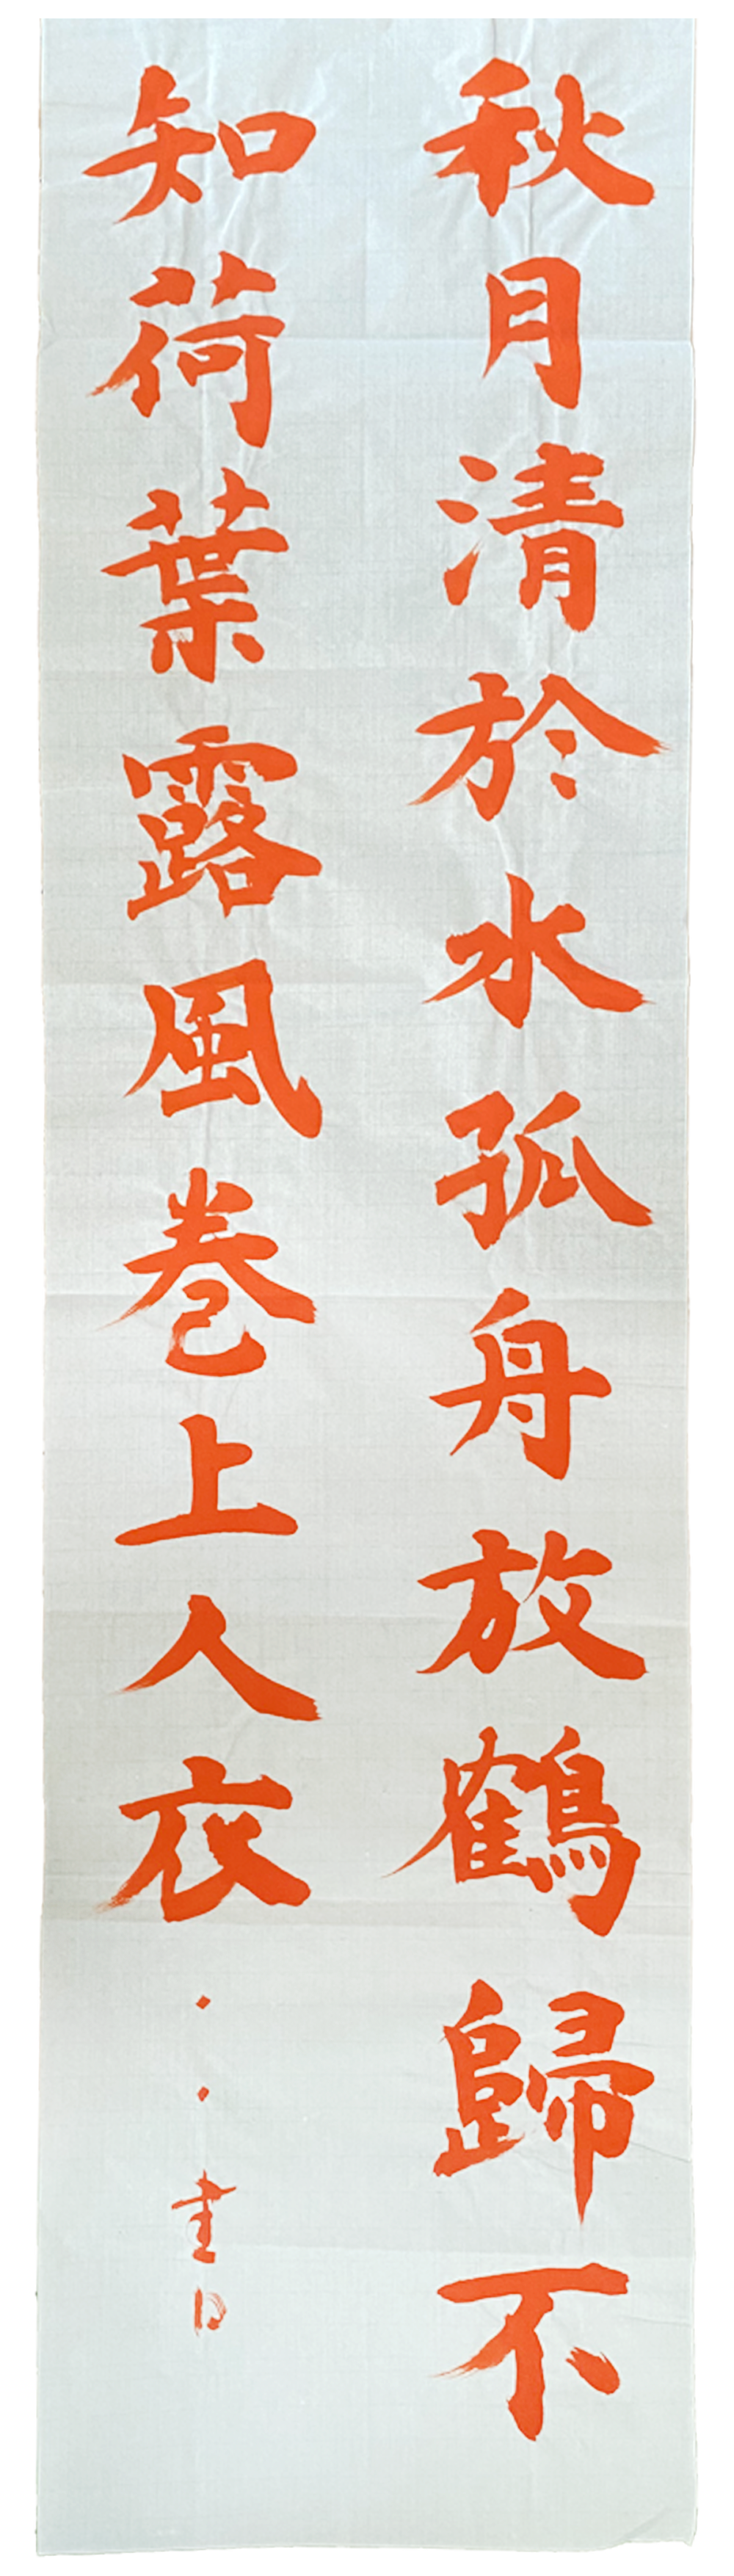 秋月清於水孤舟放鶴歸不
知荷葉露風巻上人衣
書